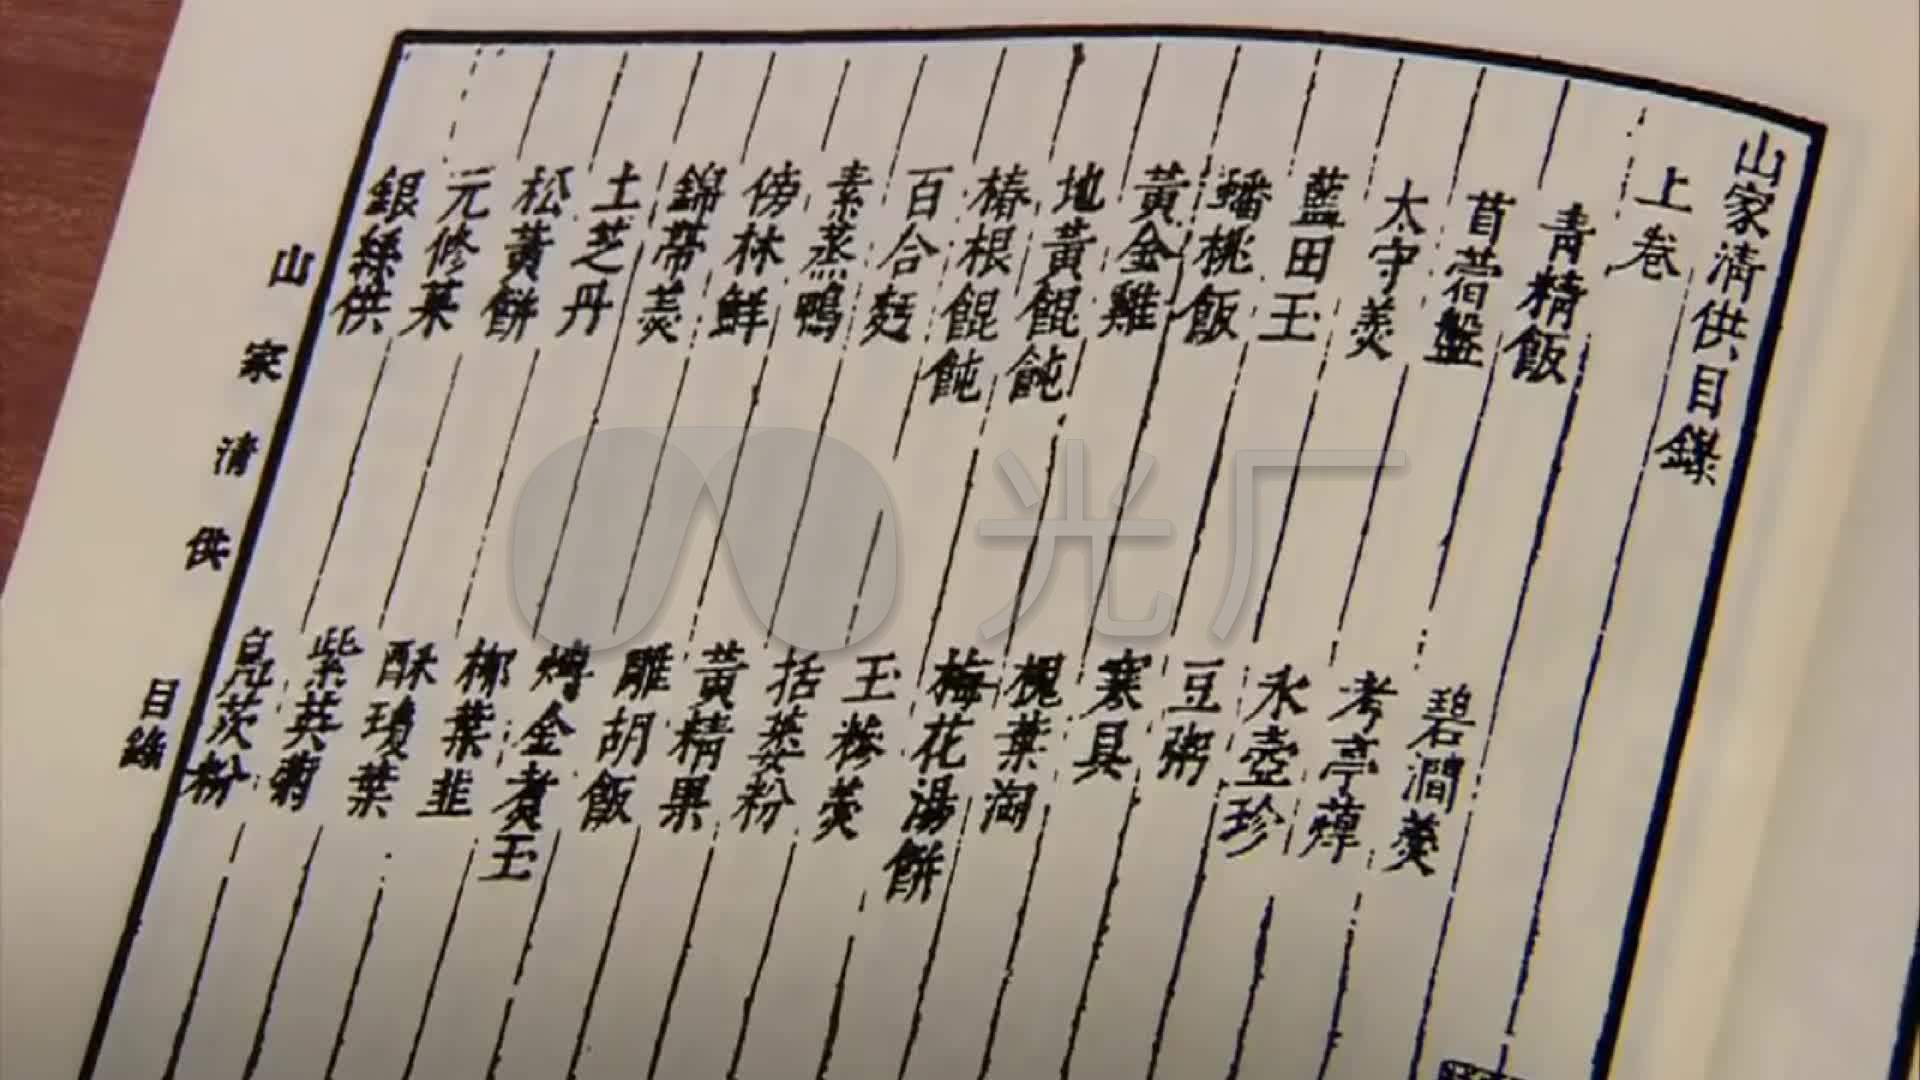 山家清供目錄
上卷
青精飯 碧澗羹
苜蓿盤 考亭蔊
太守羹 氷壺珍
藍田玉 豆粥
蟠桃飯 寒具
黃金雞 槐葉淘
地黃餛飩 梅花湯餅
椿根餛飩 玉糝羹
百合麪 括蔞粉
素蒸鴨 黃精果
傍林鮮 雕胡飯
錦帶羹 煿金煮玉
土芝丹 柳葉韭
松黃餅 酥瓊葉
元修菜 紫英菊
銀絲供 鳧茨粉
山家清供 目錄
光厂